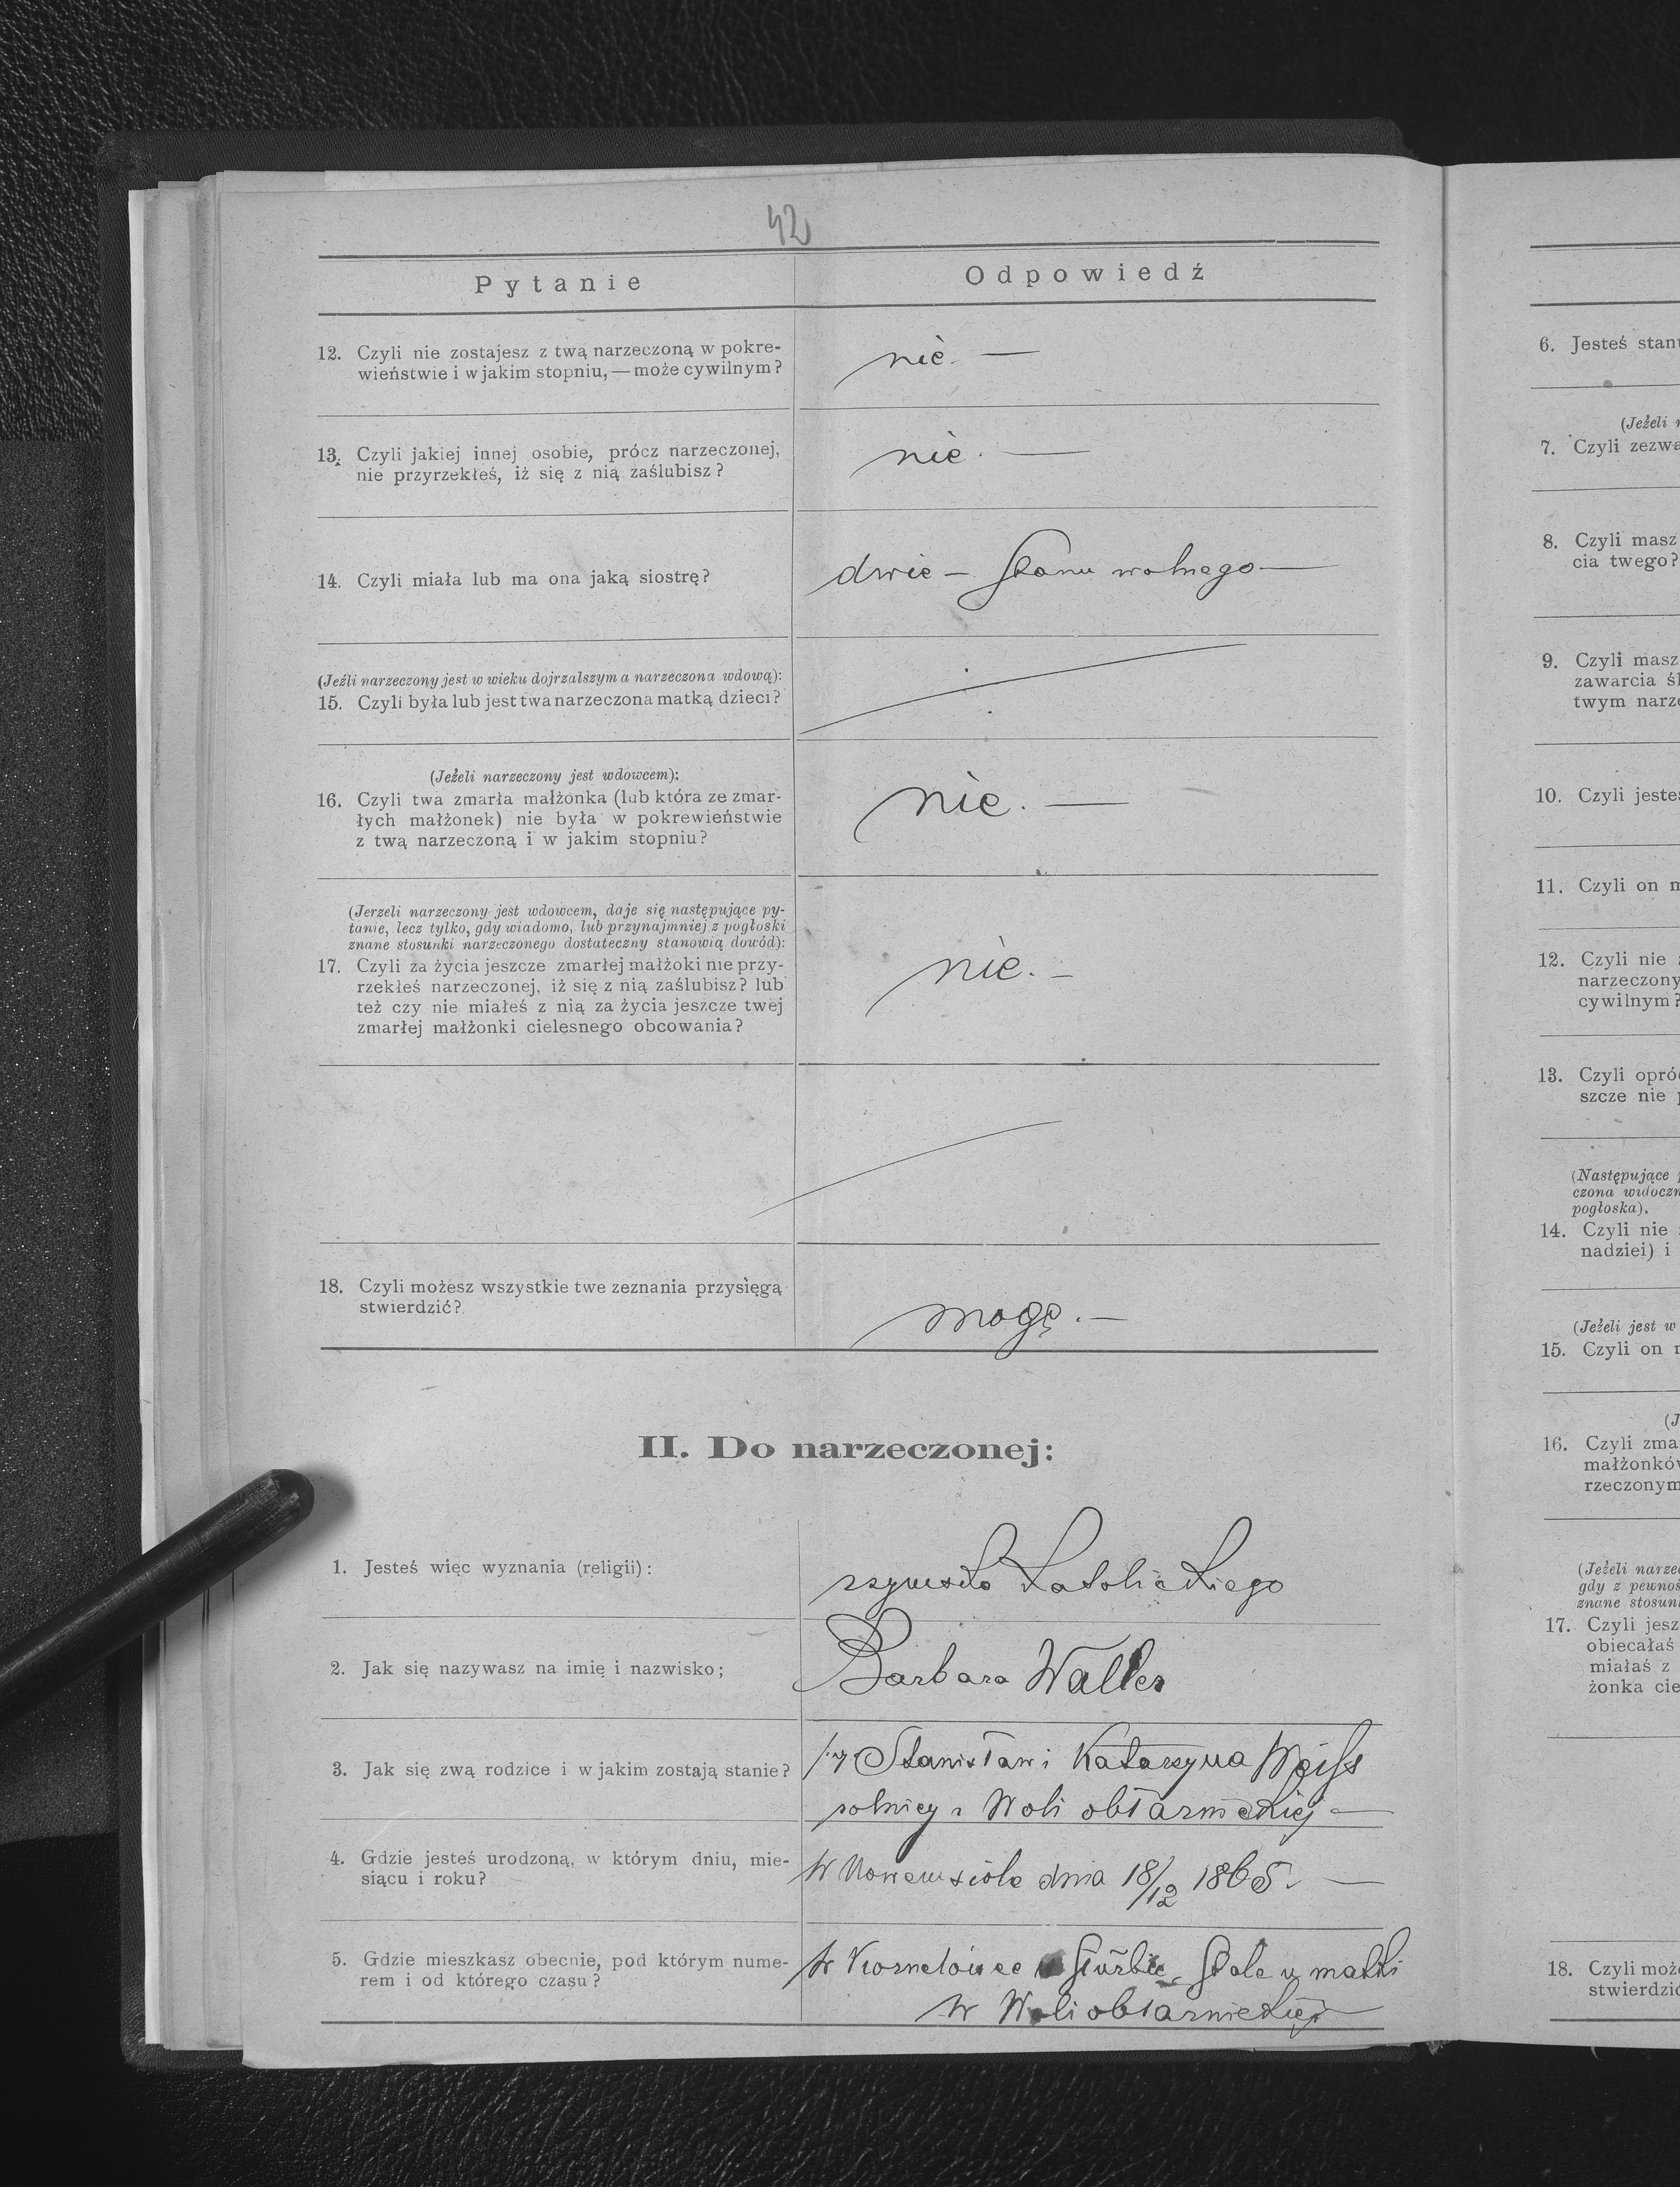 42
Pytanie
Odpowiedź
12. Czyli nie zostajesz z twą narzeczoną w pokre-
wieństwie i w jakim stopniu, — może cywilnym?
nie. —
13. Czyli jakiej innej osobie, prócz narzeczonej,
nie przyrzekłeś, iż się z nią zaślubisz?
nie. —
14. Czyli miała lub ma ona jaką siostrę?
dwie — stanu wolnego —
(Jeźli narzeczony jest w wieku dojrzalszym a narzeczona wdową):
15. Czyli była lub jest twa narzeczona matką dzieci?
(Jeżeli narzeczony jest wdowcem):
16. Czyli twa zmarła małżonka (lub która ze zmar-
łych małżonek) nie była w pokrewieństwie
z twą narzeczoną i w jakim stopniu?
nie. —
(Jerzeli narzeczony jest wdowcem, daje się następujące py-
tanie, lecz tylko, gdy wiadomo, lub przynajmniej z pogłoski
znane stosunki narzeczonego dostateczny stanowią dowód):
17. Czyli za życia jeszcze zmarłej małżoki nie przy-
rzekłeś narzeczonej, iż się z nią zaślubisz? lub
też czy nie miałeś z nią za życia jeszcze twej
zmarłej małżonki cielesnego obcowania?
nie. —
18. Czyli możesz wszystkie twe zeznania przysięgą
stwierdzić?
mogę. —
II. Do narzeczonej:
1. Jesteś więc wyznania (religii):
rzymsko katolickiego
2. Jak się nazywasz na imię i nazwisko;
Barbara Walter
3. Jak się zwą rodzice i w jakim zostają stanie?
Stanisław i Katarzyna Weiss
rolnicy z Woli obłaznickiej —
4. Gdzie jesteś urodzoną, w którym dniu, mie-
siącu i roku?
W Nowemsiole dnia 18/12 1865. —
5. Gdzie mieszkasz obecnie, pod którym nume-
rem i od którego czasu?
w służbie, stale u matki
w Woli obłaznickiej
6. Jesteś stanu
(Jeżeli
7. Czyli zezwa
8. Czyli masz
cia twego?
9. Czyli masz
zawarcia śl
twym narze
10. Czyli jesteś
11. Czyli on m
12. Czyli nie
narzeczony
cywilnym?
13. Czyli opró
szcze nie
(Następujące
czona widoczn
pogłoska).
14. Czyli nie
nadziei) i
(Jeżeli jest w
15. Czyli on
16. Czyli zma
małżonków
rzeczonym
(Jeżeli narze
gdy z pewnoś
znane stosun
17. Czyli jesz
obiecałaś
miałaś z
żonka cie
18. Czyli moż
stwierdzić